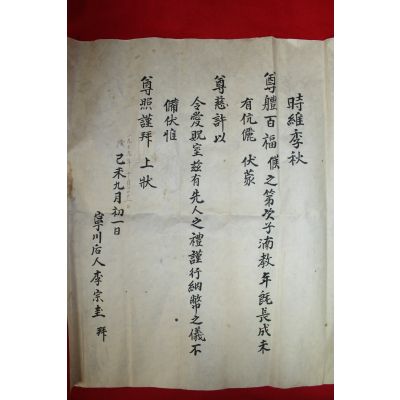 時維季秋
尊體百福 僕之第次子湳教年旣長成未
有伉儷 伏蒙
尊慈許以
令愛貺室玆有先人之禮謹行納幣之儀不
備伏惟
尊照謹拜 上狀
己未九月初一日
寧川后人 李宗圭 拜